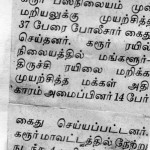 கரூர் பஸ்நிலையம் முன்
மறியலுக்கு முயற்சித்த
37 பேரை போலீசார் கைது
செய்தனர். கரூர் ரயில்
நிலையத்தில் மங்களூர்-
திருச்சி ரயிலை மறிக்க
முயற்சித்த மக்கள் அதி
காரம் அமைப்பினர் 14 பேர்
கைது செய்யப்பட்டனர்.
கரூர் மாவட்டத்தில் நேற்று